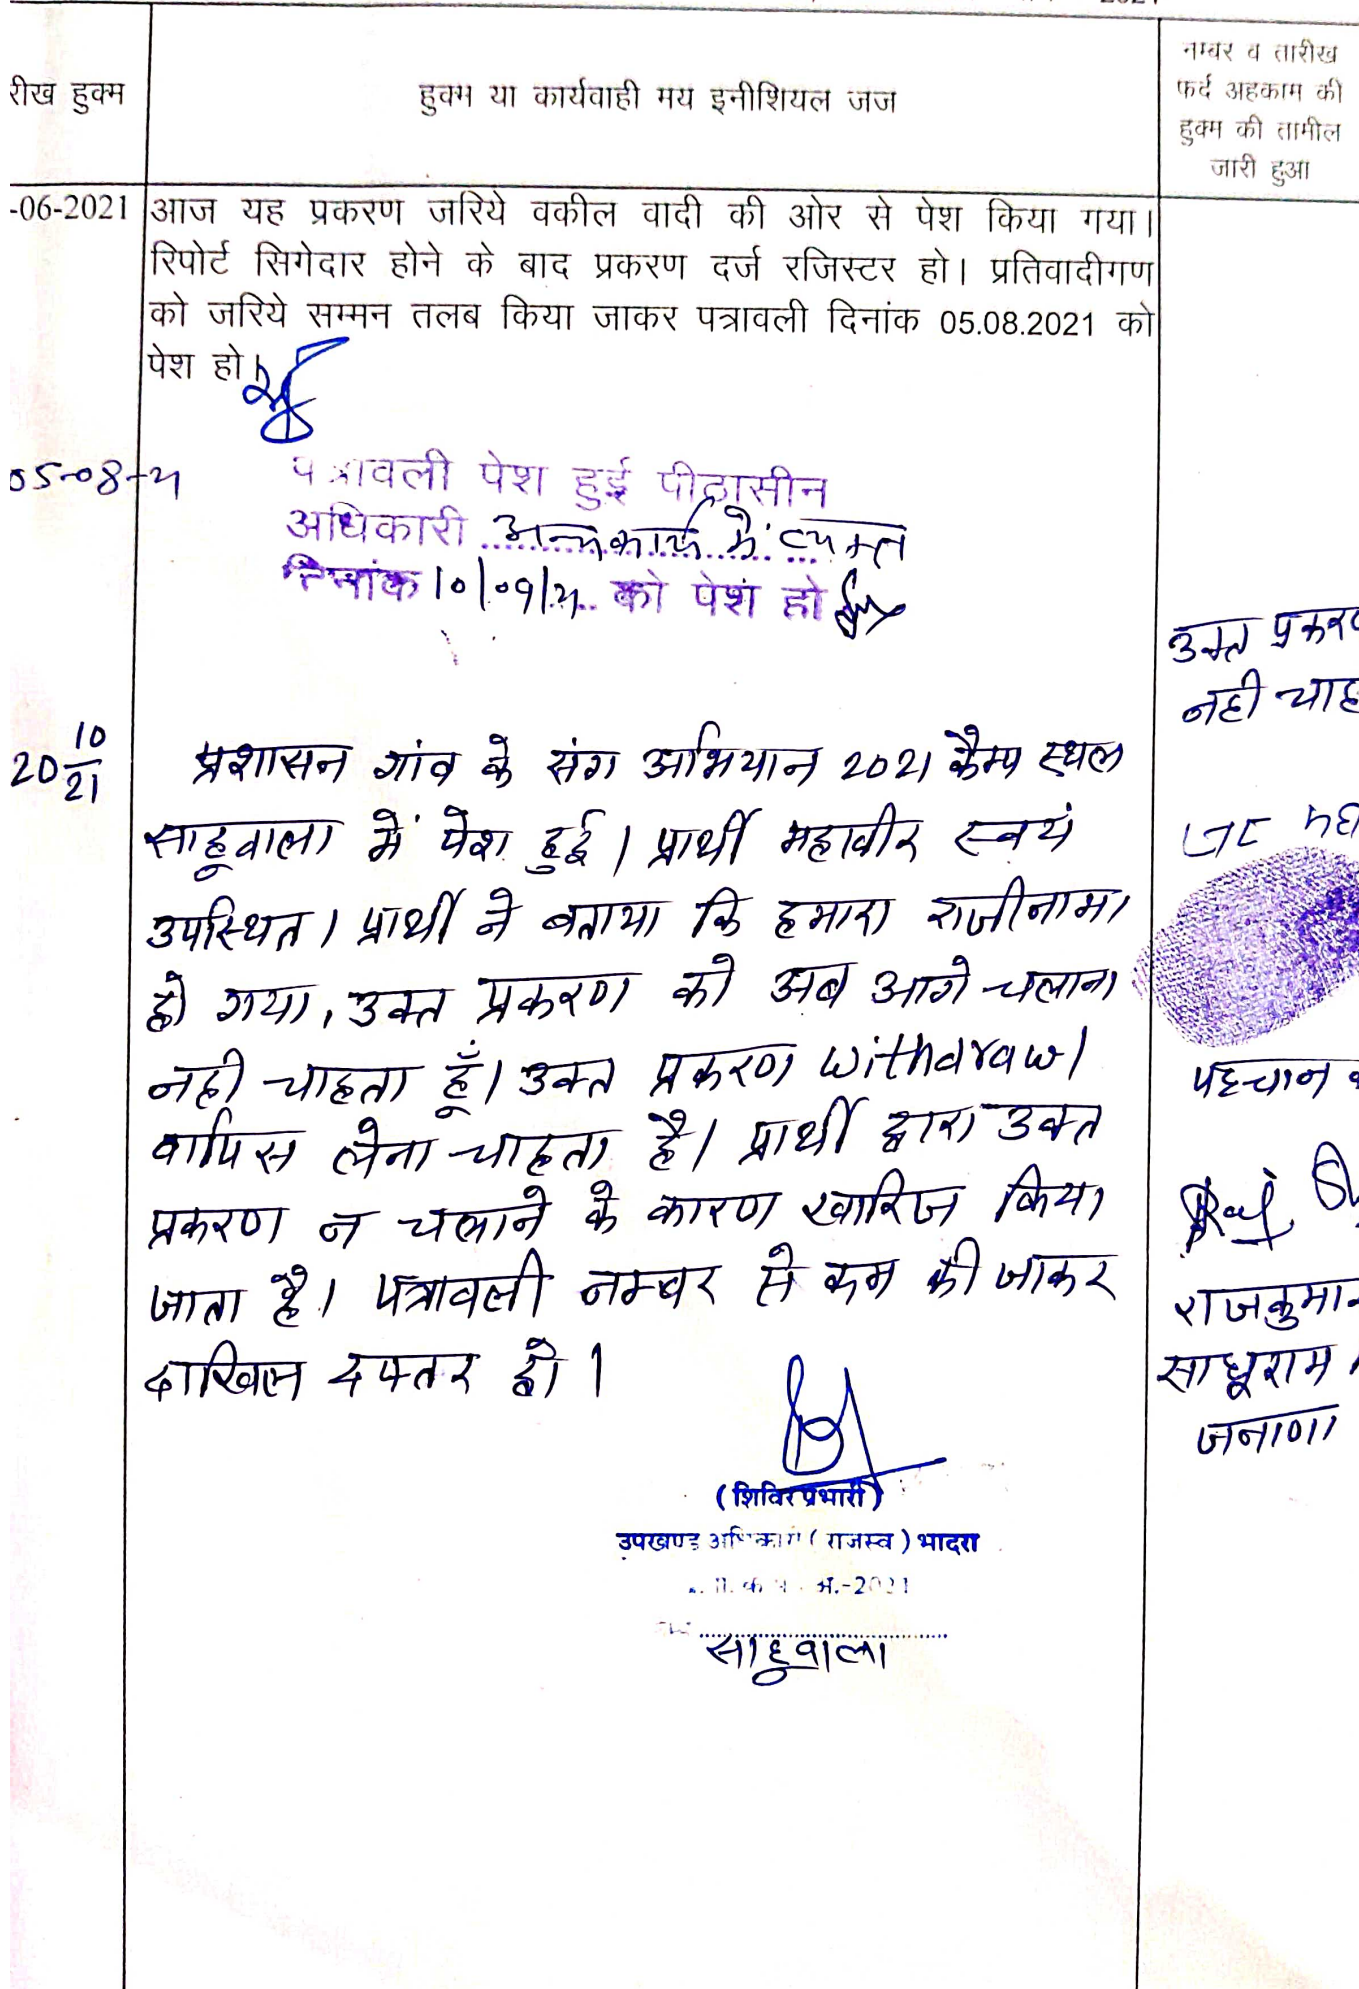 रीख हुक्म
हुक्म या कार्यवाही मय इनीशियल जज
नम्बर व तारीख
फर्द अहकाम की
हुक्म की तामील
जारी हुआ
-06-2021
आज यह प्रकरण जरिये वकील वादी की ओर से पेश किया गया।
रिपोर्ट सिगेदार होने के बाद प्रकरण दर्ज रजिस्टर हो। प्रतिवादीगण
को जरिये सम्मन तलब किया जाकर पत्रावली दिनांक 05.08.2021 को
पेश हो।
05-08-21
पत्रावली पेश हुई पीठासीन
अधिकारी अन्य कार्य में व्यस्त
दिनांक 10/09/21 को पेश हो
उक्त प्रकरण
नही चाह
20 10/21
प्रशासन गांव के संग अभियान 2021 कैम्प स्थल
साहूवाला में पेश हुई। प्रार्थी महावीर स्वयं
उपस्थित। प्रार्थी ने बताया कि हमारा राजीनामा
हो गया, उक्त प्रकरण को अब आगे चलाना
नही चाहता हूँ। उक्त प्रकरण withdrawl
वापिस लेना चाहता है। प्रार्थी द्वारा उक्त
प्रकरण न चलाने के कारण खारिज किया
जाता है। पत्रावली नम्बर से कम की जाकर
दाखिल दफ्तर हो।
पहचान
राजकुमार
साधूराम
जनाणा
(शिविर प्रभारी)
उपखण्ड अधिकारी (राजस्व) भादरा
अ.-2021
साहूवाला